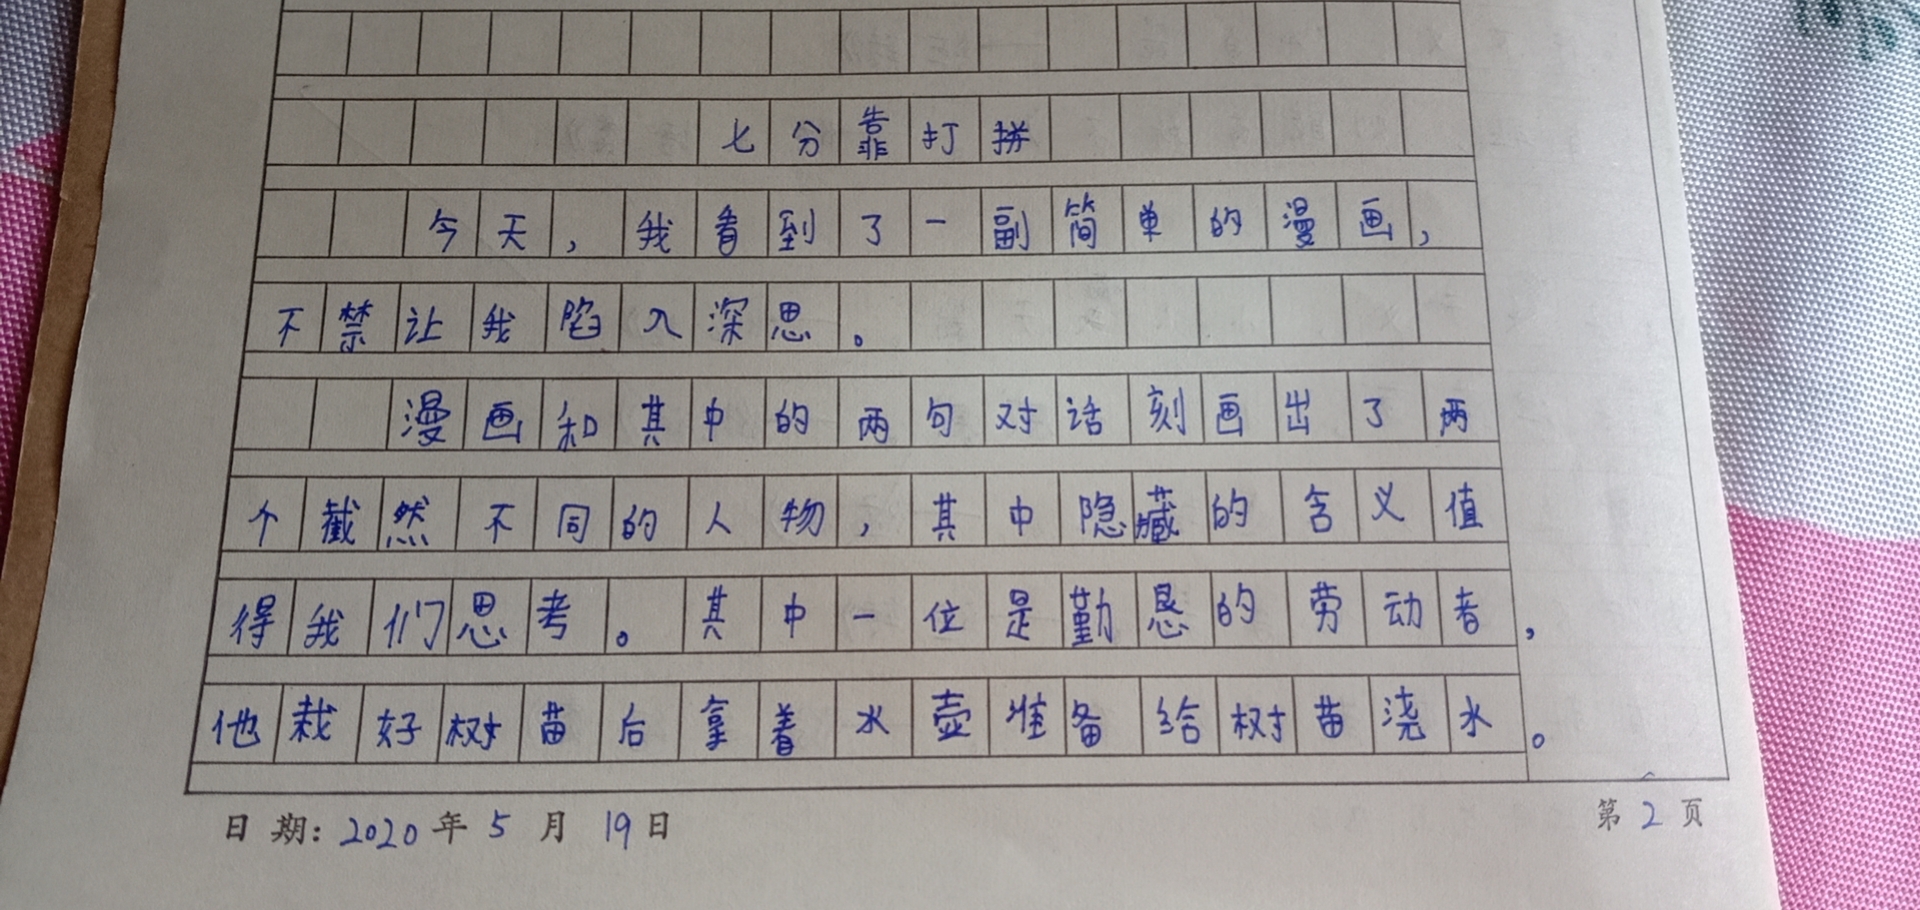 七分靠打拼
今天，我看到了一副简单的漫画，
不禁让我陷入深思。
漫画和其中的两句对话刻画出了两
个截然不同的人物，其中隐藏的含义值
得我们思考。其中一位是勤恳的劳动者，
他栽好树苗后拿着水壶准备给树苗浇水。
日期：2020年5月19日
第2页